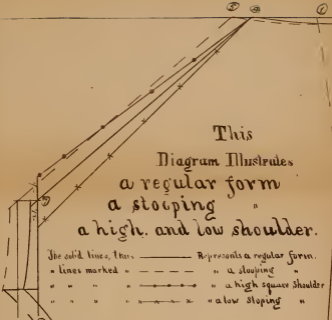 This
Diagram Illustrates
a regular form
a stooping "
a high. and low shoulder.
The solid lines, thus Represents a regular form.
" lines marked " a stooping "
" " " " a high square shoulder
" " " " a low sloping "